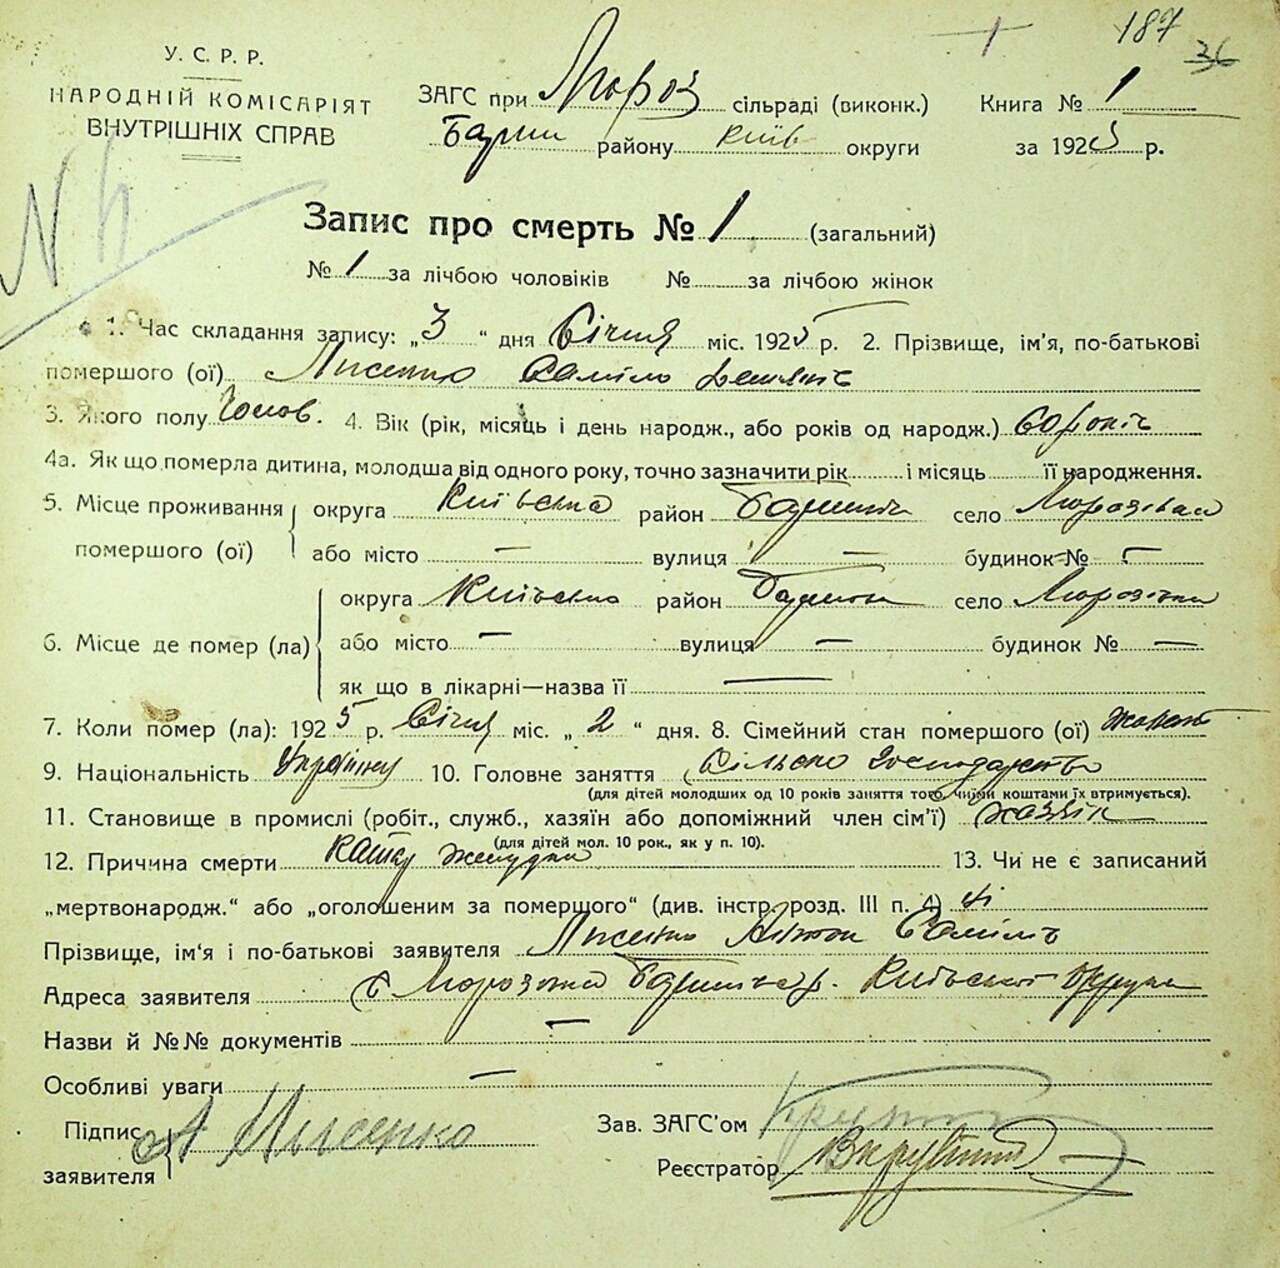 187
36
У. С. Р. Р.
НАРОДНІЙ КОМІСАРІЯТ
ВНУТРІШНІХ СПРАВ
ЗАГС при Мороз сільраді (виконк.) Книга № 1
Бариш району Київ округи за 1925 р.
Запис про смерть № 1 (загальний)
№ 1 за лічбою чоловіків № за лічбою жінок
1. Час складання запису: „3“ дня Січня міс. 1925 р. 2. Прізвище, ім'я, по-батькові
помершого (ої) Лисенко Саміло
3. Якого полу Чолов. 4. Вік (рік, місяць і день народж., або років од народж.) 60 років
4а. Як що померла дитина, молодша від одного року, точно зазначити рік і місяць її народження.
5. Місце проживання помершого (ої) округа Київська район село Морозівка
або місто — вулиця — будинок № —
6. Місце де помер (ла) округа Київська район село Морозівка
або місто — вулиця — будинок № —
як що в лікарні—назва її —
7. Коли помер (ла): 1925 р. Січня міс. „2“ дня. 8. Сімейний стан помершого (ої) жонат
9. Національність Українец 10. Головне заняття Сільско Господарство
(для дітей молодших од 10 років заняття того, чиїми коштами їх втримується).
11. Становище в промислі (робіт., служб., хазяїн або допоміжний член сім'ї) хазяїн
(для дітей мол. 10 рок., як у п. 10).
12. Причина смерти Катар желудка 13. Чи не є записаний
„мертвонародж.“ або „оголошеним за помершого“ (див. інстр. розд. III п. 4) ні
Прізвище, ім'я і по-батькові заявителя Лисенко Антон Саміл
Адреса заявителя с Морозівка р. Київської округи
Назви й №№ документів —
Особливі уваги —
Підпис заявителя А Лисенко
Зав. ЗАГС'ом
Реєстратор